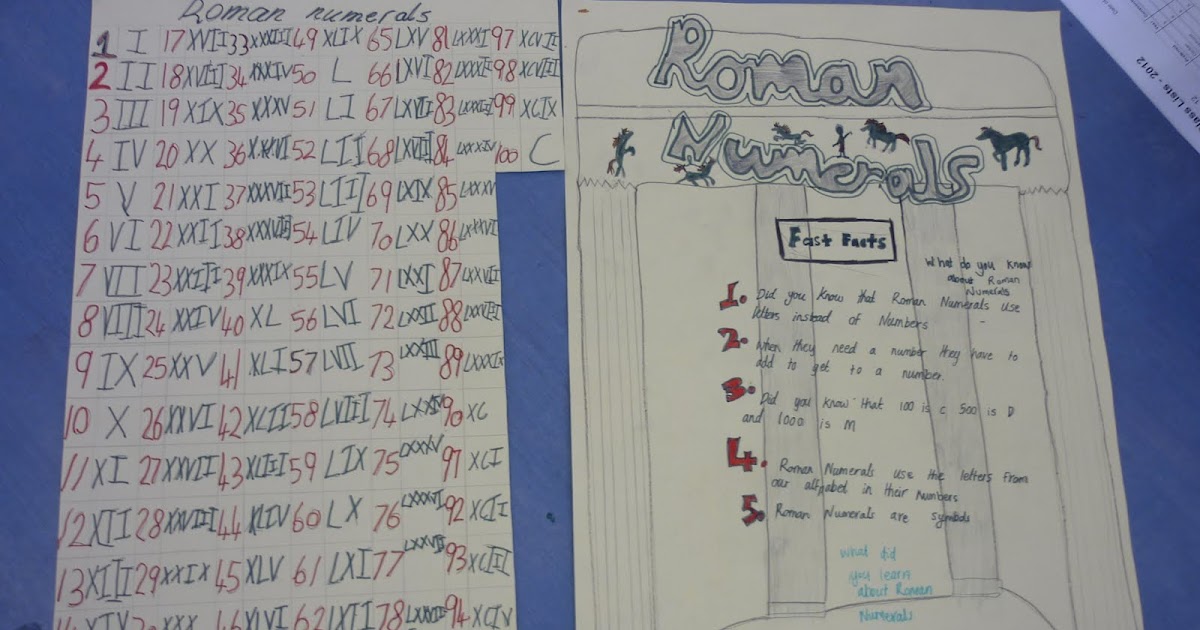 Roman numerals
1 I 17 XVII 33 XXXIII 49 XLIX 65 LXV 81 LXXXI 97 XCVII
2 II 18 XVIII 34 XXXIV 50 L 66 LXVI 82 LXXXII 98 XCVIII
3 III 19 XIX 35 XXXV 51 LI 67 LXVII 83 LXXXIII 99 XCIX
4 IV 20 XX 36 XXXVI 52 LII 68 LXVIII 84 LXXXIV 100 C
5 V 21 XXI 37 XXXVII 53 LIII 69 LXIX 85 LXXXV
6 VI 22 XXII 38 XXXVIII 54 LIV 70 LXX 86 LXXXVI
7 VII 23 XXIII 39 XXXIX 55 LV 71 LXXI 87 LXXXVII
8 VIII 24 XXIV 40 XL 56 LVI 72 LXXII 88 LXXXVIII
9 IX 25 XXV 41 XLI 57 LVII 73 LXXIII 89 LXXXIX
10 X 26 XXVI 42 XLII 58 LVIII 74 LXXIV 90 XC
11 XI 27 XXVII 43 XLIII 59 LIX 75 LXXXV 91 XCI
12 XII 28 XXVIII 44 XLIV 60 LX 76 LXXXVI 92 XCII
13 XIII 29 XXIX 45 XLV 61 LXI 77 LXXVII 93 XCIII
14 XIV 30 XXX 46 XLVI 62 LXII 78 LXXVIII 94 XCIV
Roman
Numerals
Fast Facts
What do you know
about Roman
Numerals
1. Did you know that Roman Numerals use
letters instead of Numbers
2. When they need a number they have to
add to get to a number.
3. Did you know that 100 is c 500 is D
and 1000 is M
4. Roman Numerals use the letters from
our alfpabed in their Numbers
5. Roman Numerals are symbols
what did
you learn
about Roman
Numerals
Class Lists - 2012